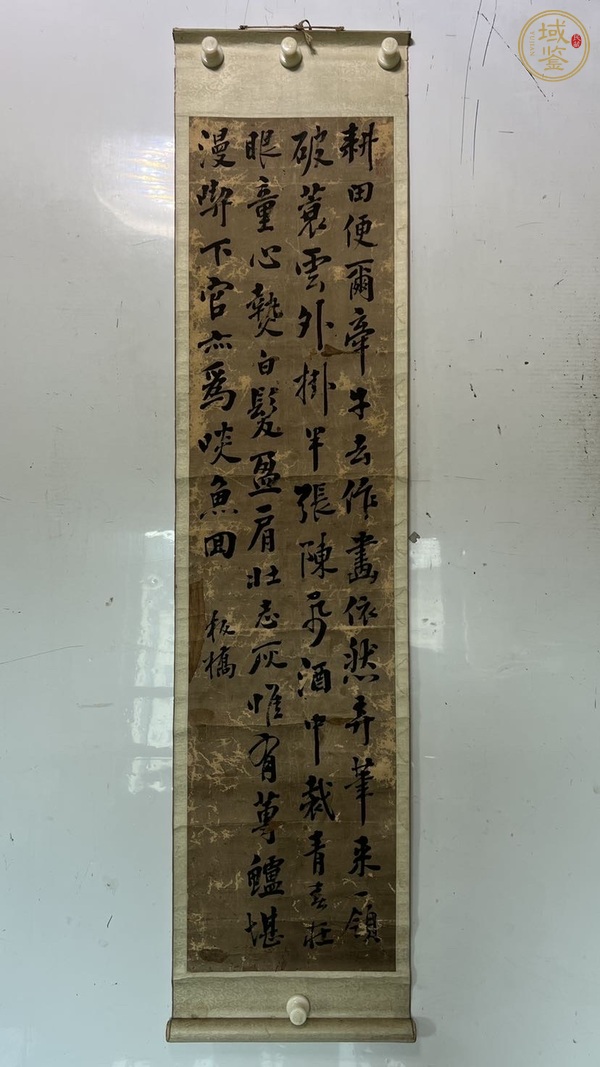 耕田便爾牽牛去作畫依然弄筆來一領
破蓑雲外掛半張陳帋酒中裁青春在
眼童心熱白髮盈肩壯志灰惟有蓴鱸堪
漫喫下官亦爲啖魚回
板橋
域鉴
YUJIAN